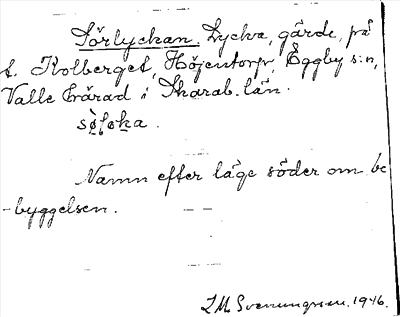 Sörlyckan. Lycka, gärde, på
t. Kolberget, Höjentorp, Eggby s:n,
Valle härad i Skarab. län.
Namn efter läge söder om be
-byggelsen.
Svenungsson. 1946.